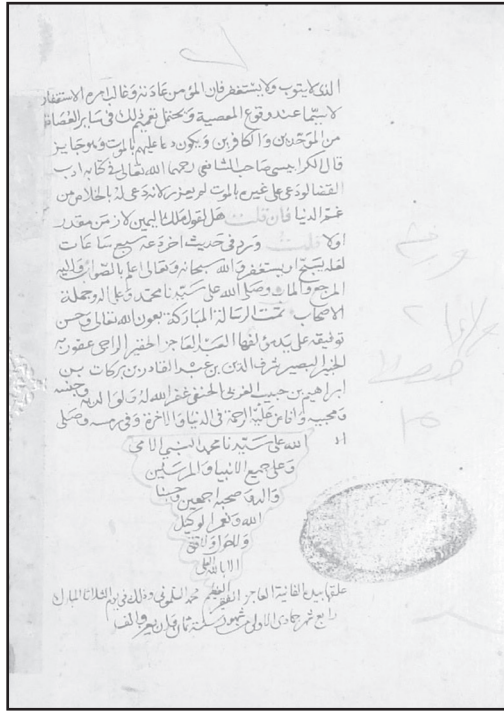 الذي لا يتوب ولا يستغفر فان المؤمن عادته وغالب امره الاستغفار
لا سيما عند وقوع المعصية ويحتمل تعميم ذلك في ساير العصاة
من الموحدين والكافرين ويكون دعا عليهم بالموت وهو جايز
قال الكرابيسي صاحب الشافعي رحمهما الله تعالى في كتابه ادب
القضا لو دعى على غيره بالموت لم يعزر لانه دعى له بالخلاص من
غم الدنيا فان قلت هل لقول ملك اليمين لازمن مقدر
اولا قلت ورد في حديث اخر دعه سبع ساعات
لعله يسبح او يستغفر والله سبحانه وتعالى اعلم بالصواب واليه
المرجع والماب وصلى الله على سيدنا محمد وعلى اله وجملة
الاصحاب تمت الرسالة المباركة بعون الله تعالى وحسن
توفيقه على يد مؤلفها العبد العاجز الحقير الراجي عفو ربه
الخبير البصير شرف الدين بن عبد القادر بن بركات بن
ابراهيم بن حبيب الغزي الحنفي غفر الله له ولوالديه
ومحبيه وافاض عليه الرحمة في الدنيا والاخرة وفي رمسه وصلى
الله على سيدنا محمد النبي الامي
وعلى جميع الانبيا والمرسلين
والـه وصحبه اجمعين وحسبنا
الله ونعم الوكيل
ولا حول ولا قوة
الا بالله العلي
العظيم
علقها بيده الفانية العاجز الفقير محمد السلموني وذلك في يوم الثلاثا المبارك
رابع شهر جمادى الاولى من شهور سنة ثمان والف